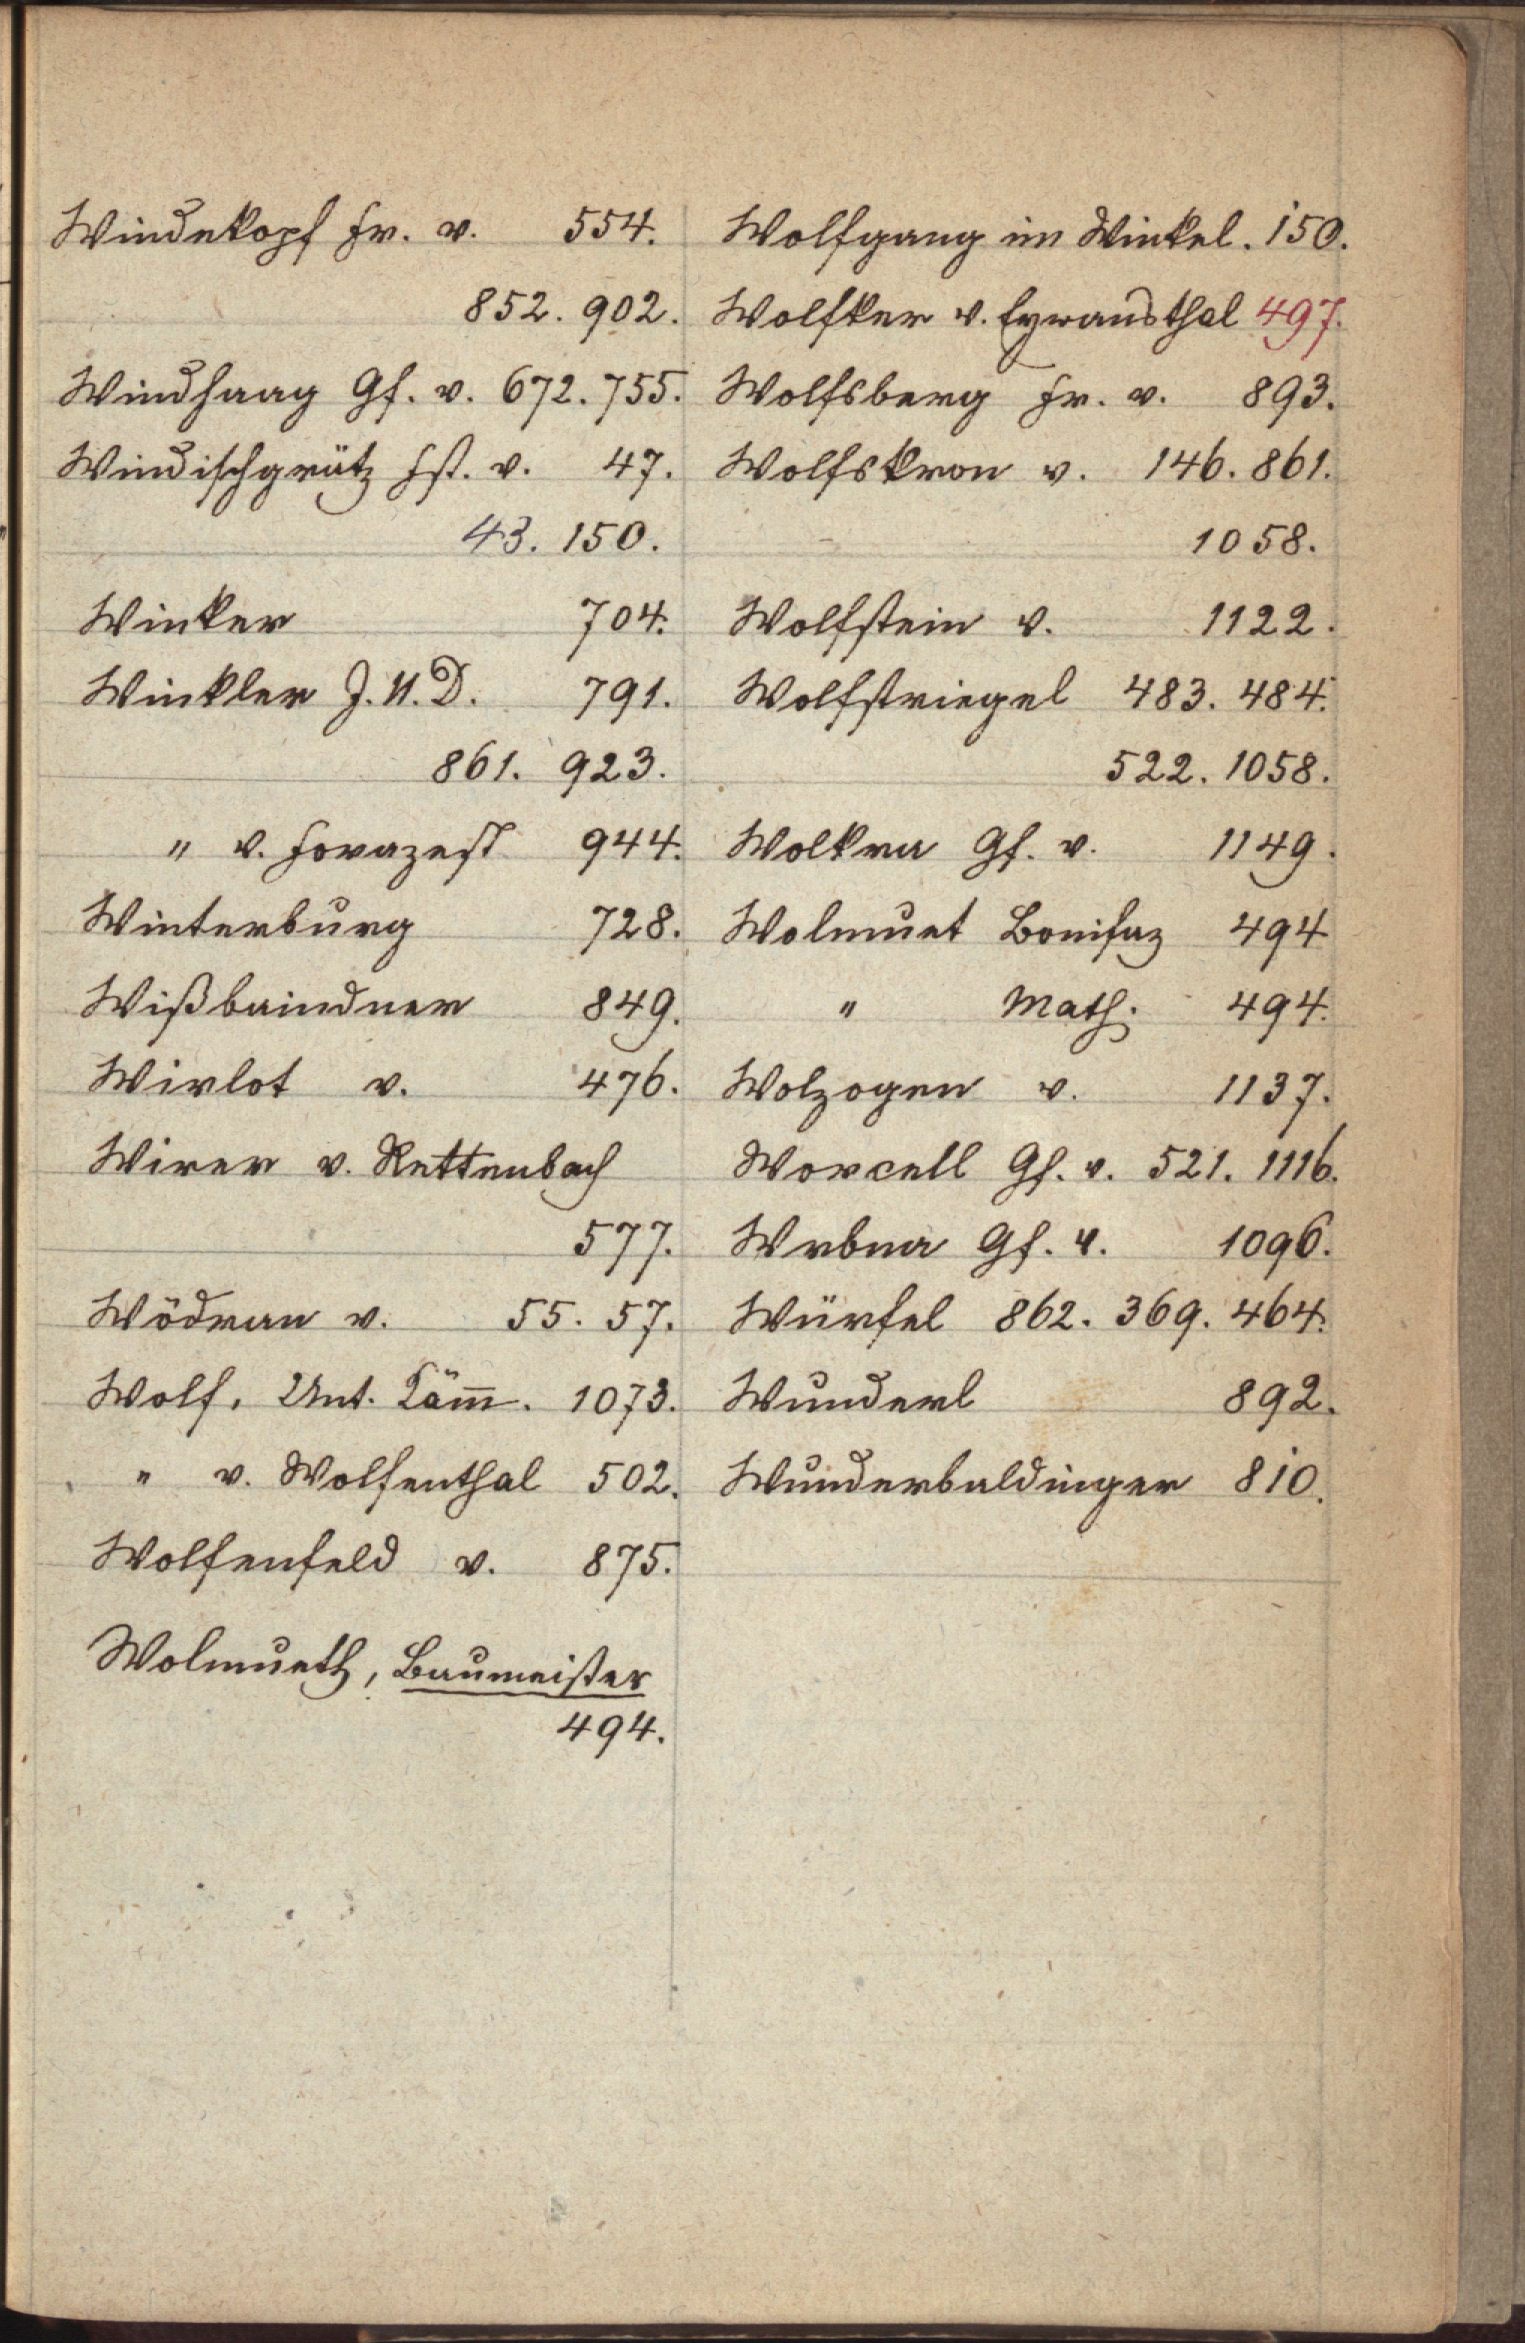 Windekopf Fr. v. 554.
852. 902.
Windhaag Gf. v. 672. 755.
Windischgrätz Fst. v. 47.
43. 150.
Winker 704.
Winkler J. U. D. 791.
861. 923.
" v. Forazest 944.
Winterburg 728.
Wißbaindner 849.
Wirlot v. 476.
Wirer v. Rettenbach
577.
Wödran v. 55. 57.
Wolf, Unt. Käm̄. 1073.
" v. Wolfenthal 502.
Wolfenfeld v. 875.
Wolmueth, Baumeister
494.
Wolfgang im Winkel. 150.
Wolfker v. Eywansthal 497.
Wolfsberg Fr. v. 893.
Wolfskron v. 146. 861.
1058.
Wolfstein v. 1122.
Wolfstriegel 483. 484.
522. 1058.
Wolkra Gf. v. 1149.
Wolmuet Bonifaz 494
" Math. 494.
Wolzogen v. 1137.
Worcell Gf. v. 521. 1116.
Wrbna Gf. v. 1096.
Würfel 862. 369. 464.
Wunderl 892.
Wunderbaldinger 810.